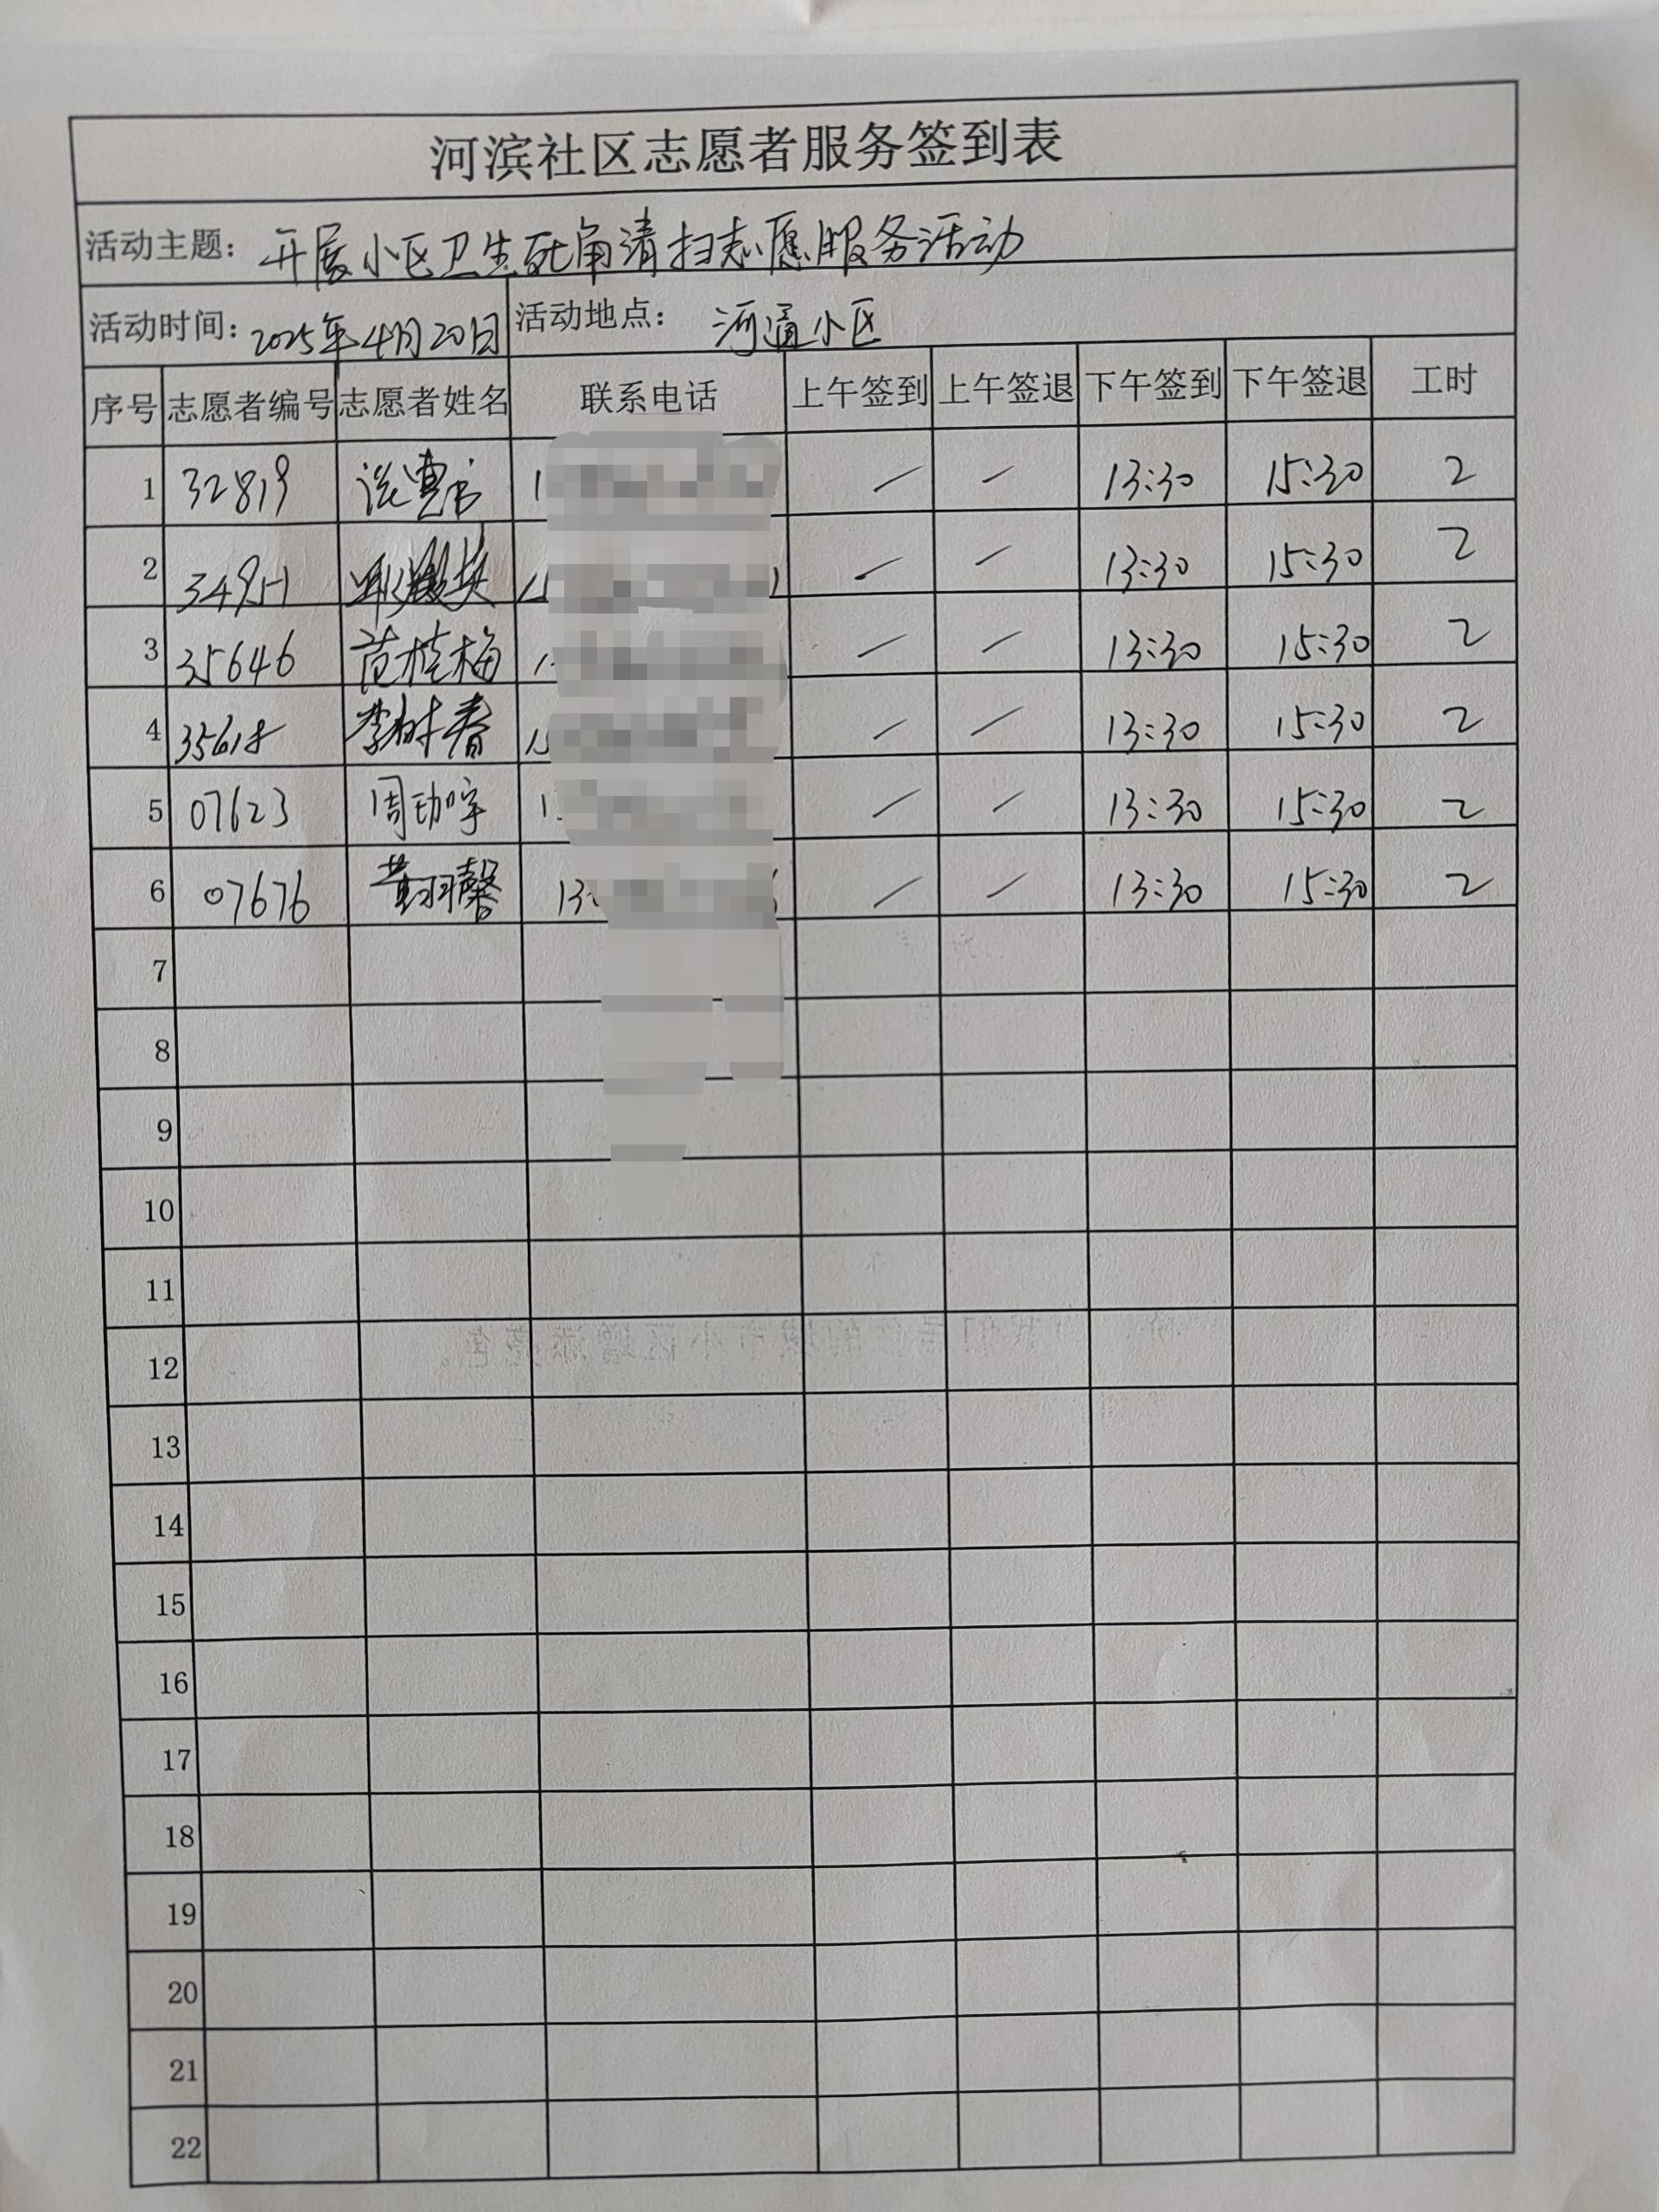 河滨社区志愿者服务签到表
活动主题：开展小区卫生死角清扫志愿服务活动
活动时间：2025年4月20日 活动地点：河通小区
序号 志愿者编号 志愿者姓名 联系电话 上午签到 上午签退 下午签到 下午签退 工时
1 32819 1 / / 13:30 15:30 2
2 34951 / / 13:30 15:30 2
3 35646 范桂梅 1 / / 13:30 15:30 2
4 35618 李树春 / / 13:30 15:30 2
5 07623 周劢宇 1 / / 13:30 15:30 2
6 07676 黄羽馨 13 / / 13:30 15:30 2
7
8
9
10
11
12
13
14
15
16
17
18
19
20
21
22